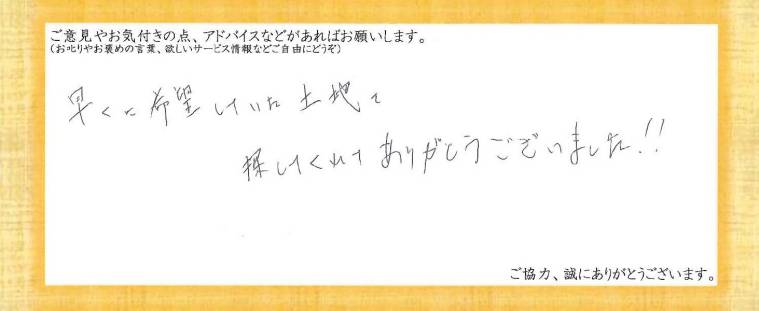 ご意見やお気付きの点、アドバイスなどがあればお願いします。
(お叱りやお褒めの言葉、欲しいサービス情報などご自由にどうぞ)
早くに希望していた土地を
探してくれてありがとうございました!!
ご協力、誠にありがとうございます。